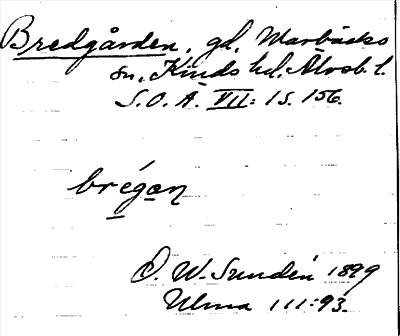 Bredgården, gd, Marbäcks
sn, Kinds hd. Älvsb. l.
S.O.Ä. VII: 1 s. 156.
brégan
D. W. Sundén 1899
Ulma 111:93.